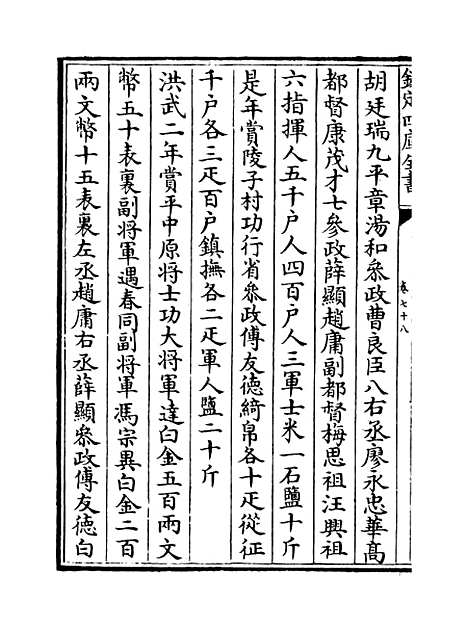 欽定四庫全書
卷七十八
胡廷瑞九平章湯和叅政曹良臣八右丞廖永忠華髙
都督康茂才七參政薛顯趙庸副都督梅思祖汪興祖
六指揮人五千户人四百户人三軍士米一石鹽十斤
是年賞陵子村功行省叅政傅友德綺帛各十疋從征
千户各三疋百户鎮撫各二疋軍人鹽二十斤
洪武二年賞平中原將士功大將軍達白金五百兩文
幣五十表裏副將軍遇春同副將軍馮宗異白金二百
兩文幣十五表裏左丞趙庸右丞薛顯叅政傅友德白